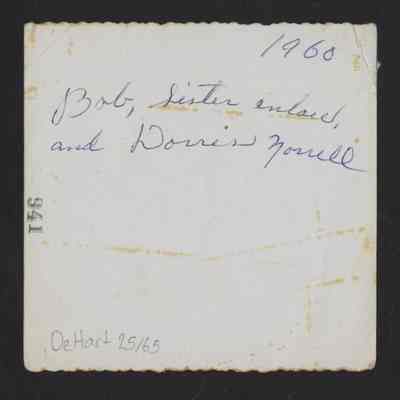 1960
Bob, Sister Enlow,
and Dorris Norrell
941
DeHart 25/65